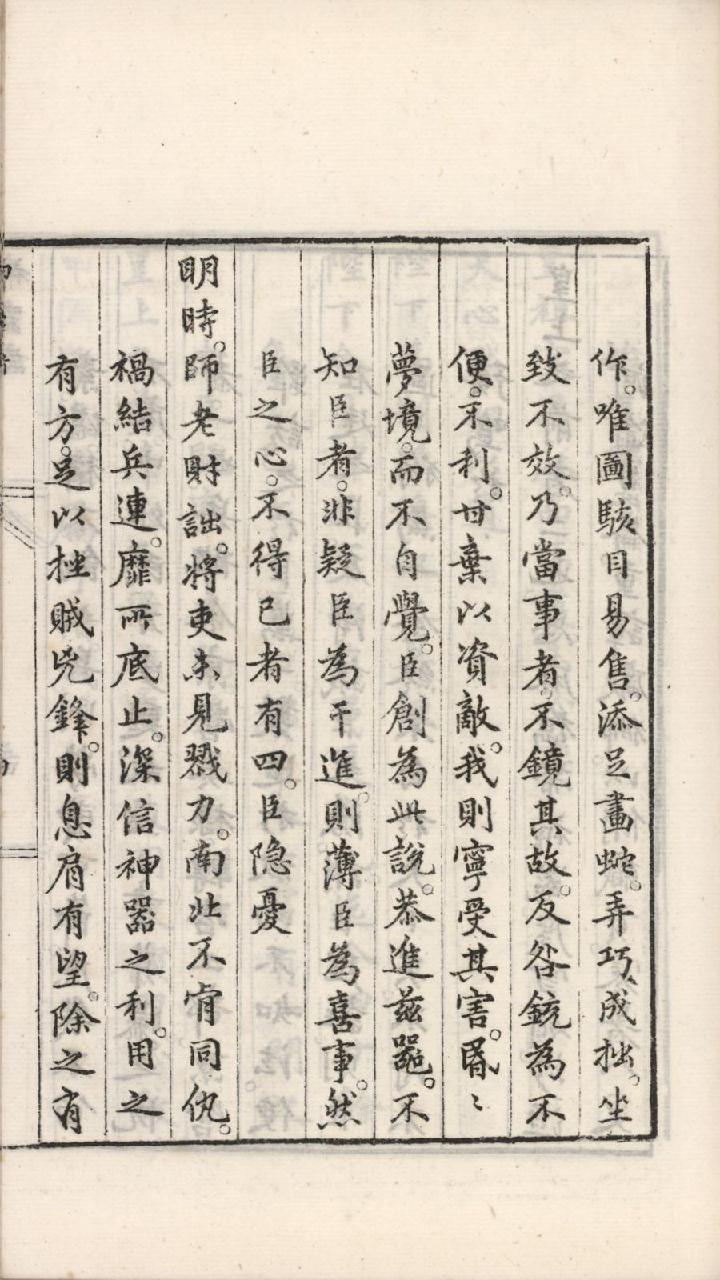 作。唯圖駭目易售。添足畫蛇。弄巧成拙。坐
致不效。乃當事者。不鏡其故。反咎銃為不
便。不利。甘棄以資敵。我則寧受其害。昏〻
夢境。而不自覺。臣創為此說。恭進茲器。不
知臣者。非疑臣為干進。則薄臣為喜事。然
臣之心。不得已者有四。臣隐憂
明時。師老財詘。將吏未見戮力。南北不肯同仇。
禍結兵連。靡所底止。深信神器之利。用之
有方。足以挫賊兇鋒。則息肩有望。除之有